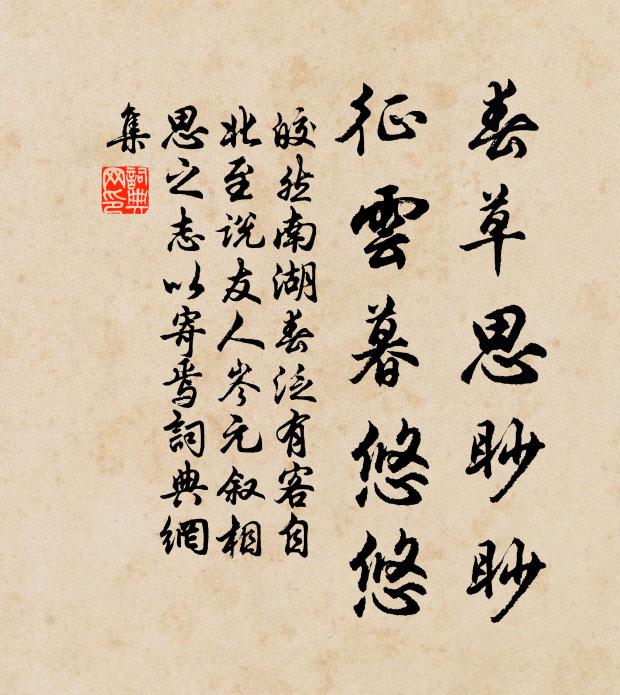 春草思眇眇
征雲暮悠悠
皎然南湖春泛有客自
北至說友人岑元叙相
思之志以寄焉詞典網
集
詞典網印